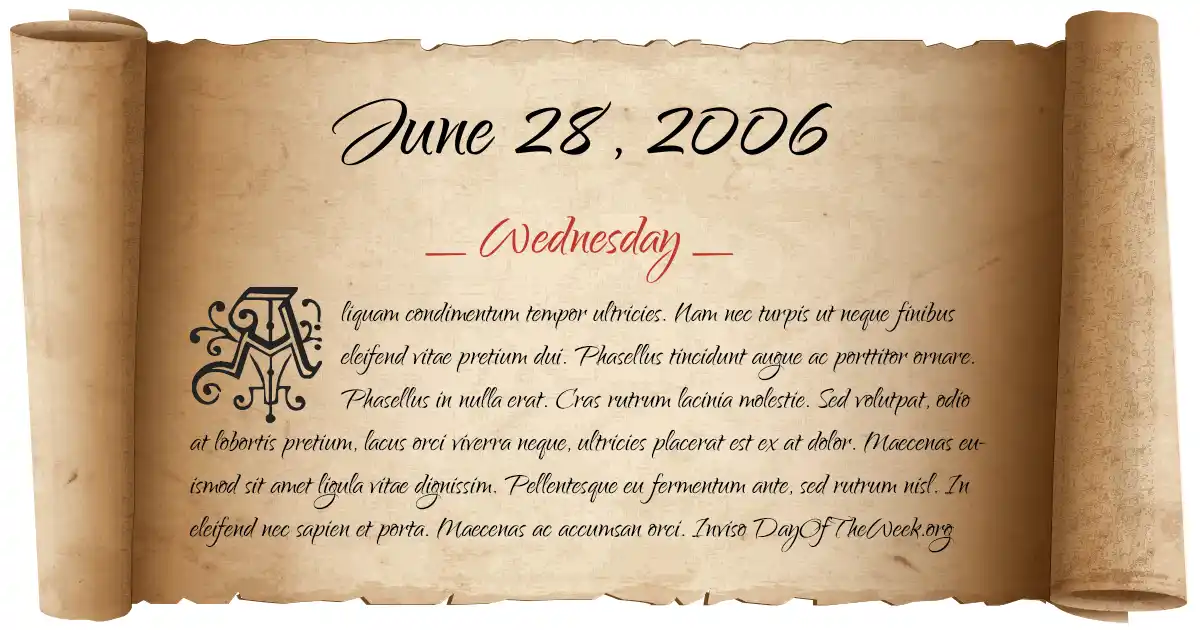 June 28, 2006
Wednesday
Aliquam condimentum tempor ultricies. Nam nec turpis ut neque finibus
eleifend vitae pretium dui. Phasellus tincidunt augue ac porttitor ornare.
Phasellus in nulla erat. Cras rutrum lacinia molestie. Sed volutpat, odio
at lobortis pretium, lacus orci viverra neque, ultricies placerat est ex at dolor. Maecenas eu-
ismod sit amet ligula vitae dignissim. Pellentesque eu fermentum ante, sed rutrum nisl. In
eleifend nec sapien et porta. Maecenas ac accumsan orci. Inviso DayOfTheWeek.org